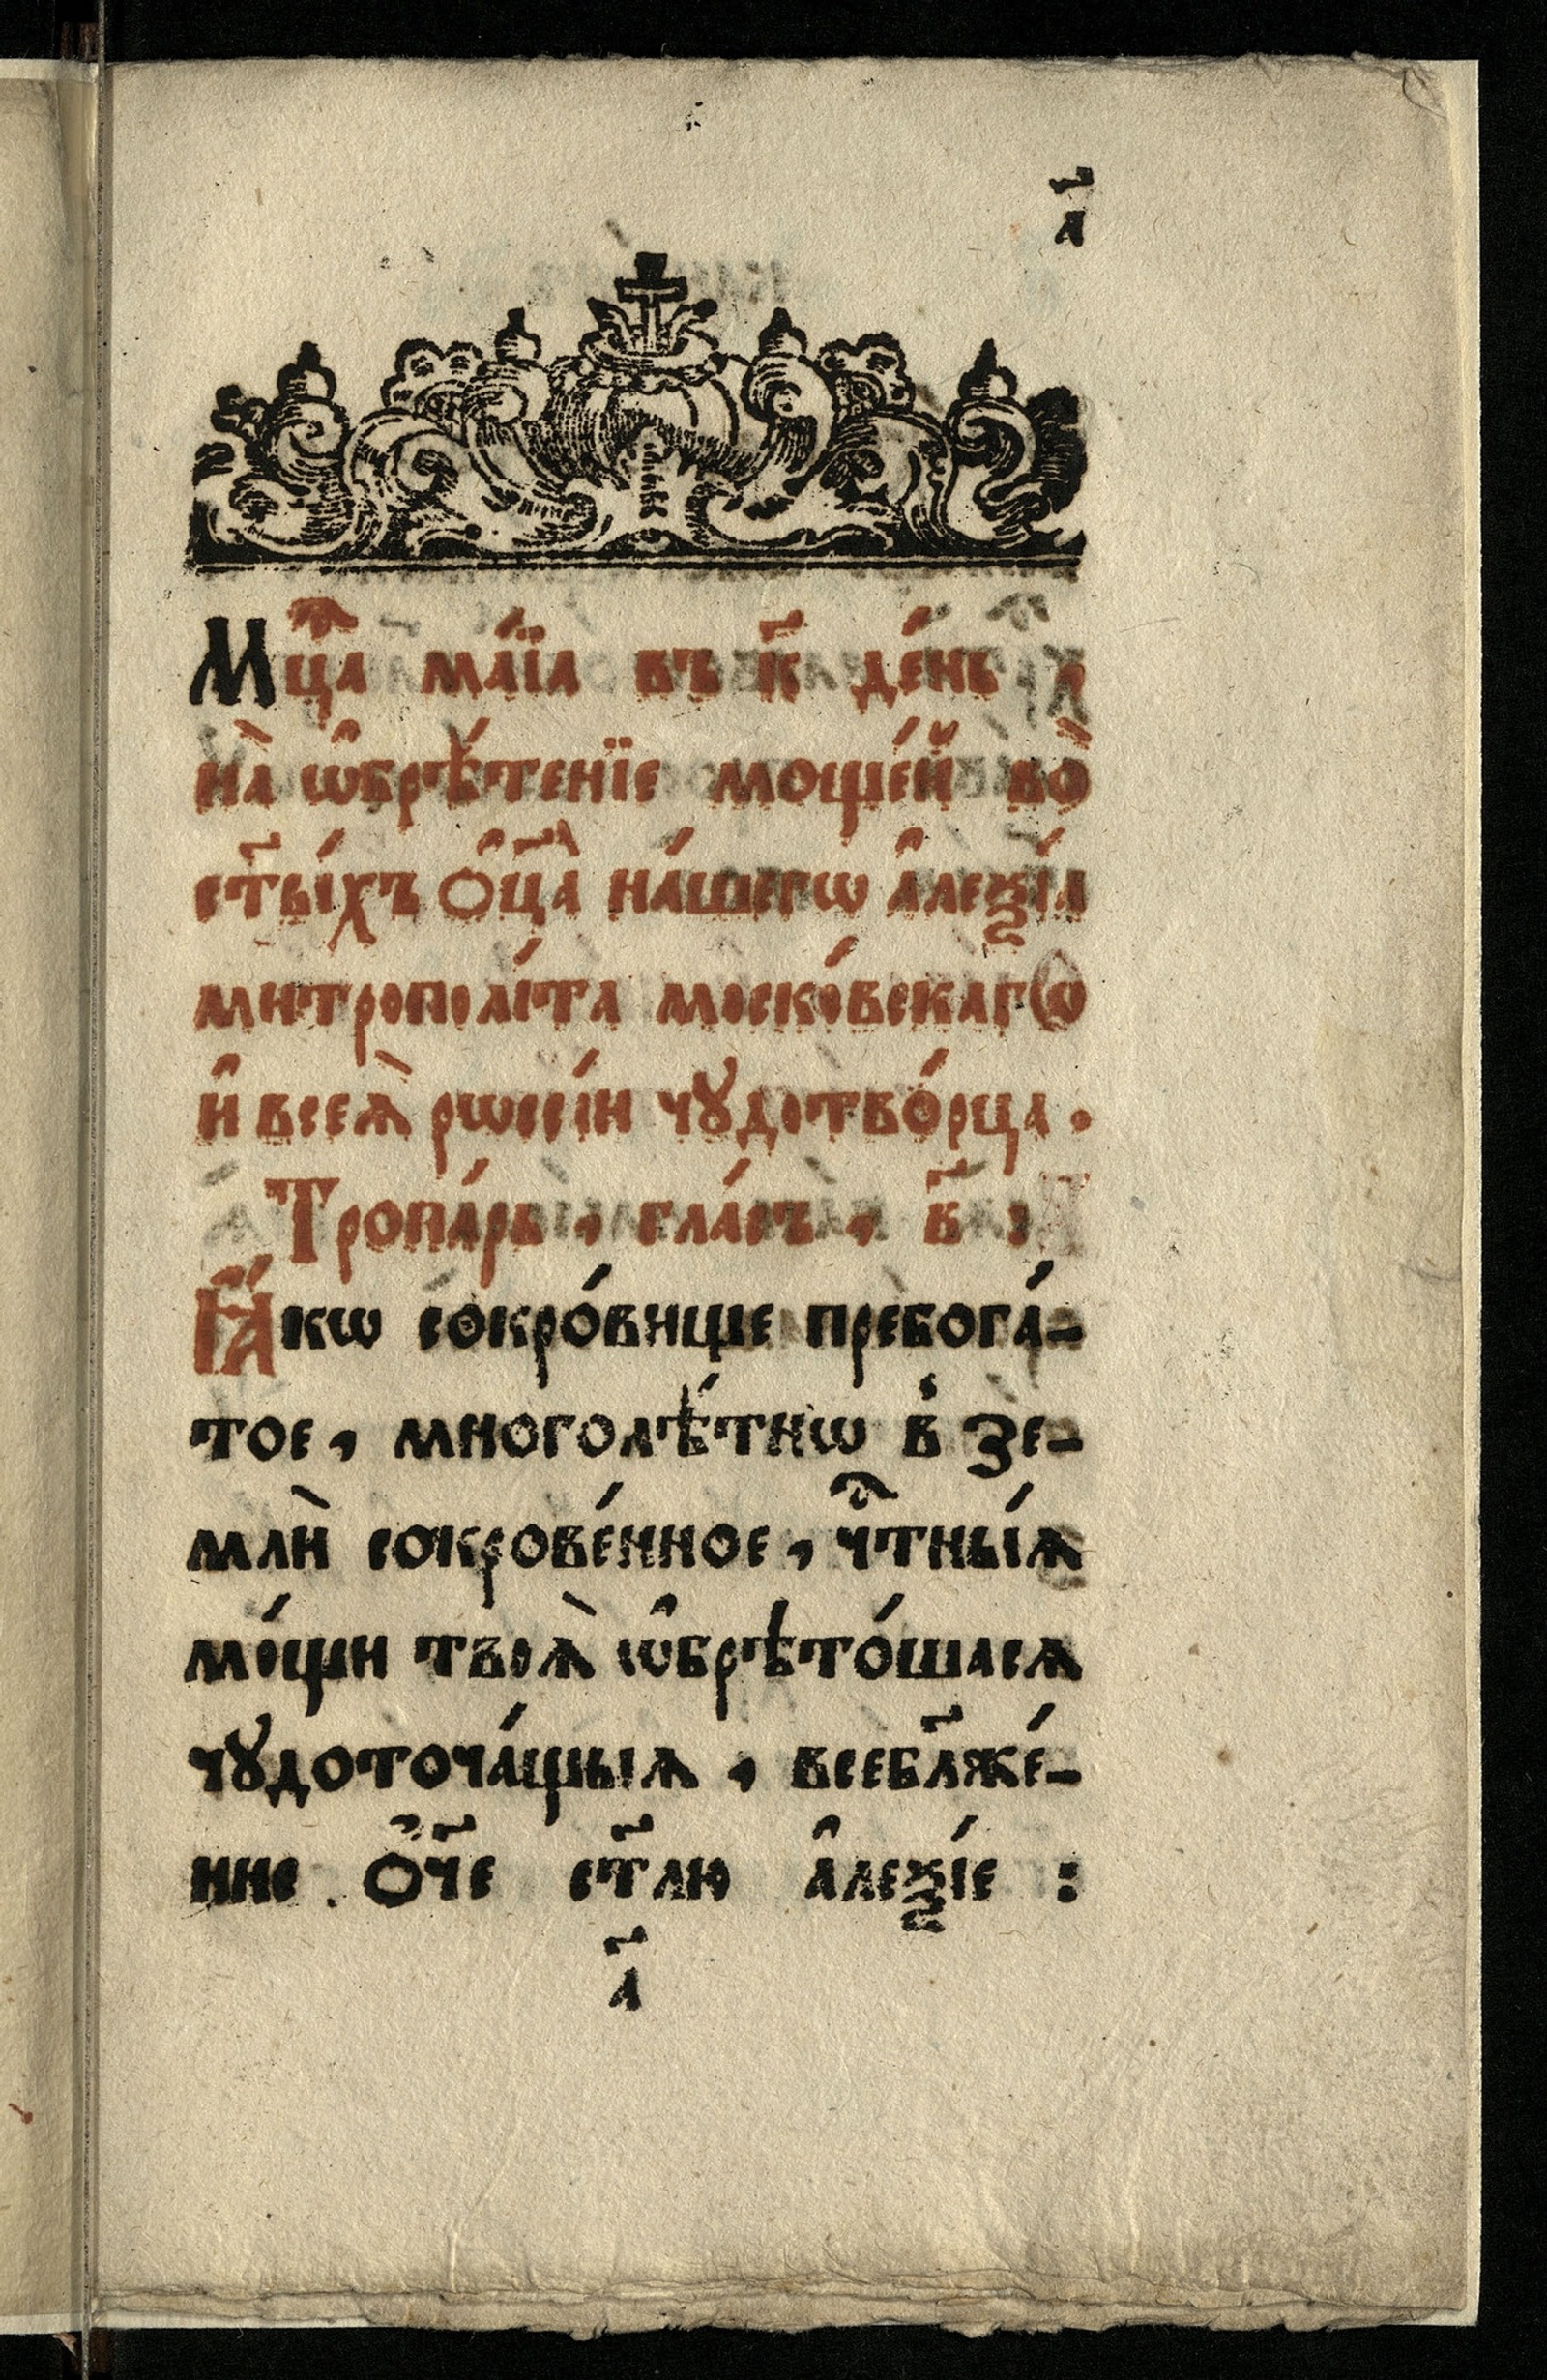 а҃
Мцⷭ҇а маїа въ к҃ де́нь ,
на̀ ѡ҆брѣ́тенїе моще́й во̀
ст҃ы́хъ ѻ҆ц҃а̀ на́шегѡ а҆леѯі́а
митрополі́та моско́вскагѡ
и҆ всеѧ̀ рѡссі́и чꙋдотво́рца .
Тропа́рь , гла́съ , в҃ :
Ꙗ҆́кѡ сокро́вище пребога́-
тое , многолѣ́тнѡ в̾ зе-
млѝ сокрове́нное , чⷭ҇тны́ѧ
мо́щи твоѧ̀ ѡ҆брѣто́шасѧ
чꙋдоточа́щыѧ , всебл҃же́-
нне . ѻ҆́ч҃е ст҃лю а҆леѯі́е :
а҃